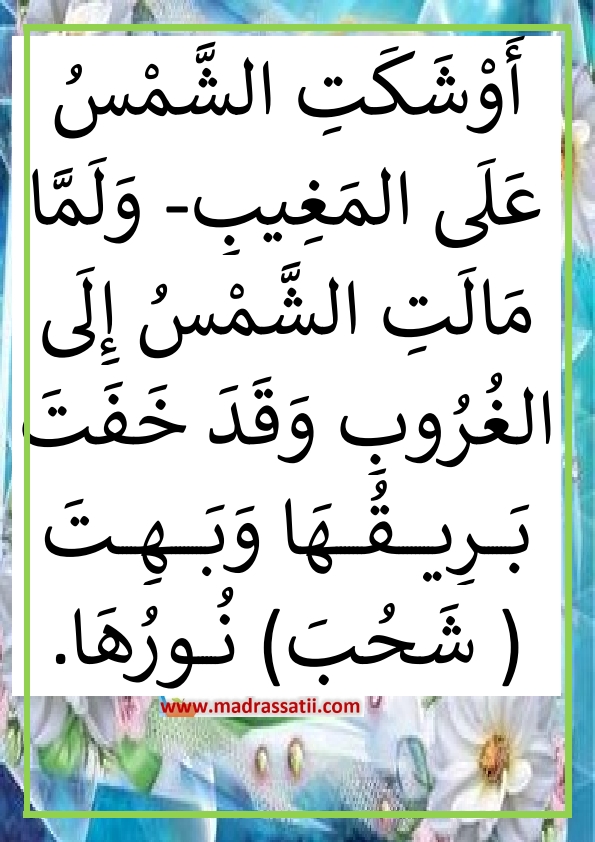 أَوْشَكَتِ الشَّمْسُ
عَلَى المَغِيبِ- وَلَمَّا
مَالَتِ الشَّمْسُ إِلَى
الغُرُوبِ وَقَدَ خَفَتَ
بَـرِيـقُـهَا وَبَـهِـتَ
( شَحُبَ) نُـورُهَا.
www.madrassatii.com